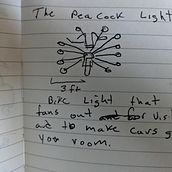 The Peacock Light
3ft
Bike Light that
fans out for vis
and to make cars g
you room.